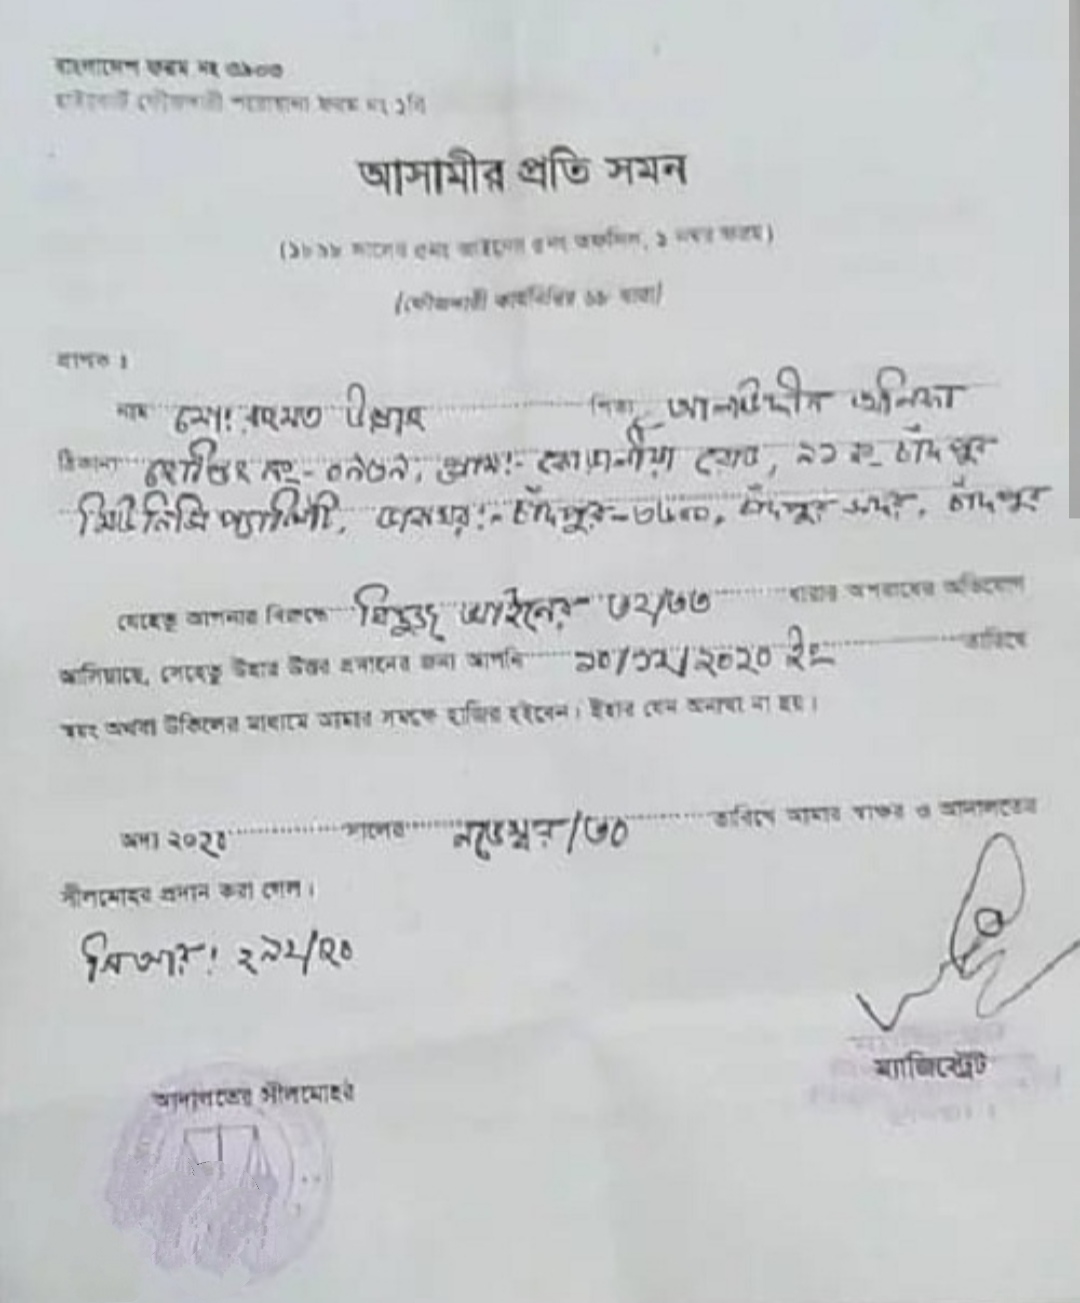 বাংলাদেশ ফরম নং
হাইকোর্ট ফৌজদারী পরোয়ানা ফরম নং
আসামীর প্রতি সমন
(১৮৯৮ সালের ৫নং আইনের ৫নং তফসিল, ১ নম্বর ফরম)
(ফৌজদারী কার্যবিধির ৬৮ ধারা)
প্রাপক ঃ
নাম মোঃ রহমত উল্লাহ পিতা
ঠিকানা হোল্ডিং নং- রোড,
চাঁদপুর-৩৬০০, চাঁদপুর সদর, চাঁদপুর
যেহেতু আপনার বিরুদ্ধে বিদ্যুৎ আইনের ৩২/৩৩ ধারার অপরাধের অভিযোগ
আসিয়াছে, সেহেতু উহার উত্তর প্রদানের জন্য আপনি ১০/১২/২০২০ ইং তারিখে
স্বয়ং অথবা উকিলের মাধ্যমে আমার সমক্ষে হাজির হইবেন। ইহার যেন অন্যথা না হয়।
অদ্য সালের নভেম্বর/৩০ তারিখে আমার স্বাক্ষর ও আদালতের
সীলমোহর প্রদান করা গেল।
বিআরঃ ২৯২/২০
ম্যাজিস্ট্রেট
আদালতের সীলমোহর